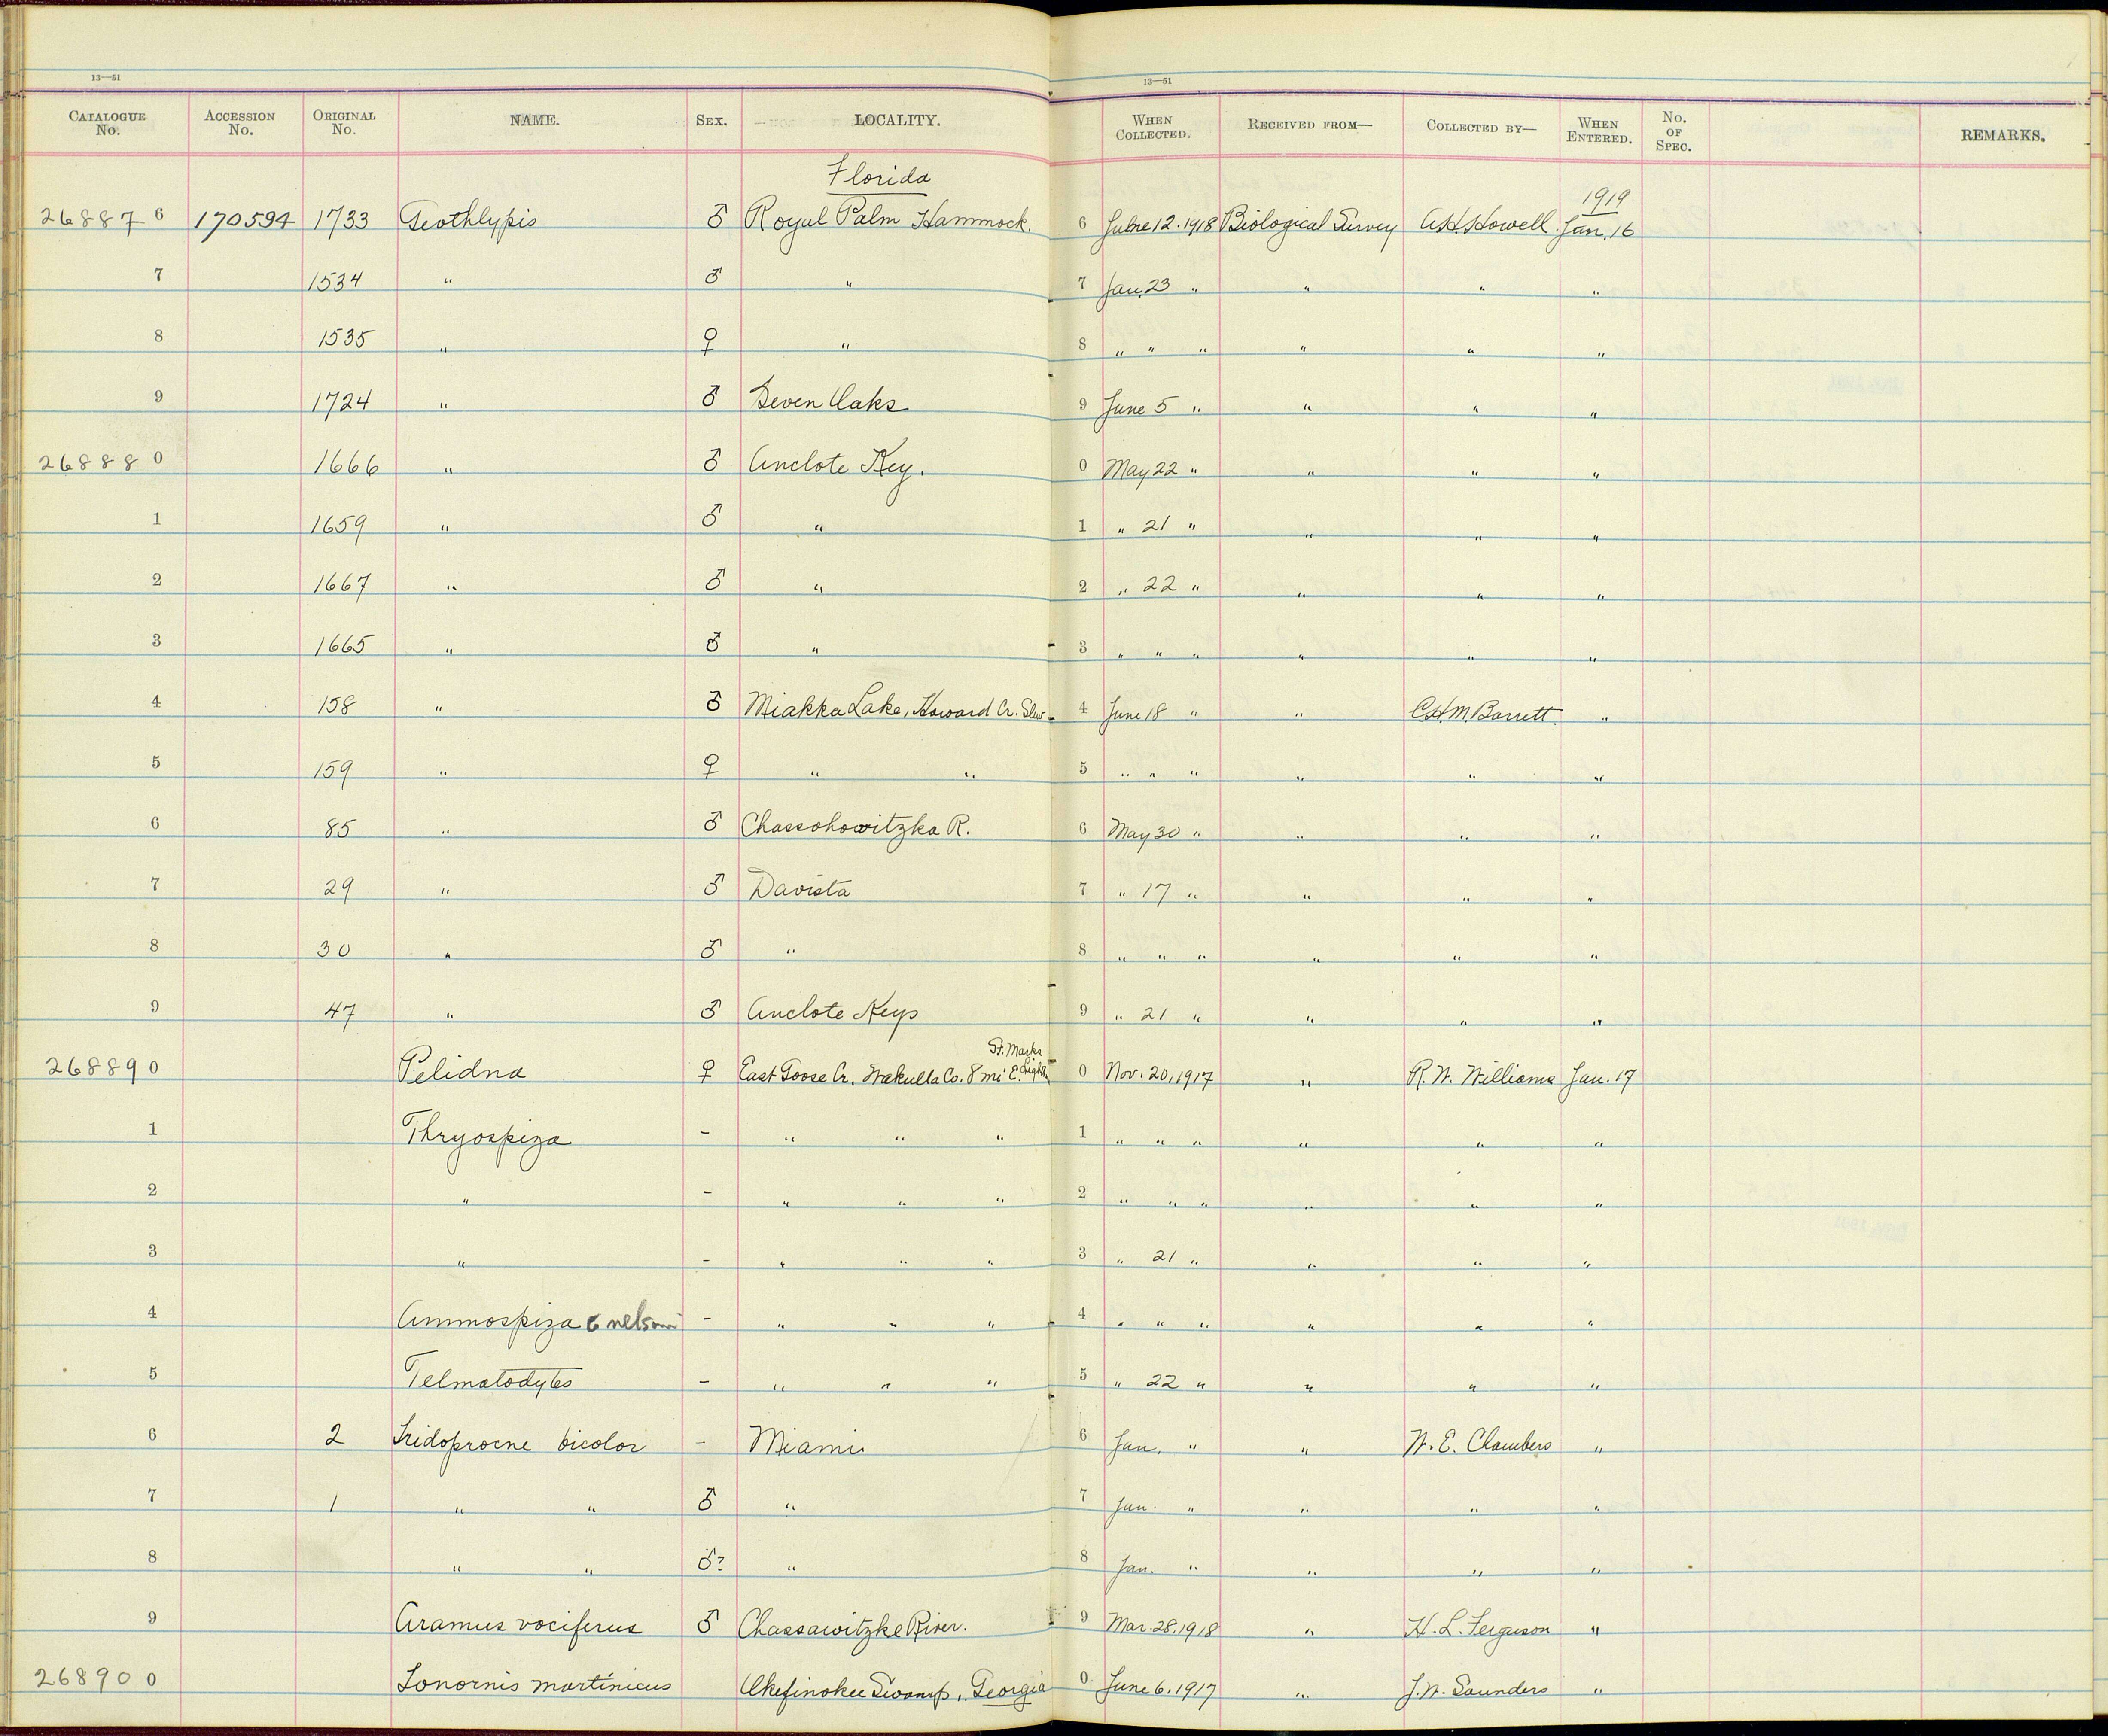 13—51 13—51
CATALOGUE No. ACCESSION No. ORIGINAL No. NAME. SEX. LOCALITY. WHEN COLLECTED. RECEIVED FROM— COLLECTED BY— WHEN ENTERED. No. OF SPEC. REMARKS.
Florida
1919
268876 170594 1733 Geothlypis ♂ Royal Palm Hammock. 6 June 12. 1918 Biological Survey A.H. Howell Jan. 16
7 1534 " ♂ " 7 Jan. 23 " " " "
8 1535 " ♀ " 8 " " " " " "
9 1724 " ♂ Seven Oaks 9 June 5 " " " "
268880 1666 " ♂ Anclote Key. 0 May 22 " " " "
1 1659 " ♂ " 1 " 21 " " " "
2 1667 " ♂ " 2 " 22 " " " "
3 1665 " ♂ " 3 " " " " " "
4 158 " ♂ Miakka Lake, Howard Cr. 4 June 18 " " C.H.M. Barrett "
5 159 " ♀ " " 5 " " " " " "
6 85 " ♂ Chassohowitzka R. 6 May 30 " " " "
7 29 " ♂ Davista 7 " 17 " " " "
8 30 " ♂ " 8 " " " " " "
9 47 " ♂ Anclote Keys 9 " 21 " " " "
St. Marks
268890 Pelidna ♀ East Goose Cr. Wakulla Co. 8 mi E. Light 0 Nov. 20, 1917 " R. W. Williams Jan. 17
1 Thryospiza - " " " 1 " " " " " "
2 " - " " " 2 " " " " " "
3 " - " " " 3 " 21 " " " "
4 Ammospiza c nelsoni - " " " 4 " " " " " "
5 Telmatodytes - " " " 5 " 22 " " " "
6 2 Iridoprocne bicolor - Miami 6 Jan. " " W. E. Chambers "
7 1 " " ♂ " 7 Jan. " " " "
8 " " ♂? " 8 Jan. " " " "
9 Aramus vociferus ♂ Chassawitzke River. 9 Mar. 28, 1918 " H. L. Ferguson "
268900 Ionornis martinicus Okefinokee Swamp, Georgia 0 June 6, 1917 " J. W. Saunders "